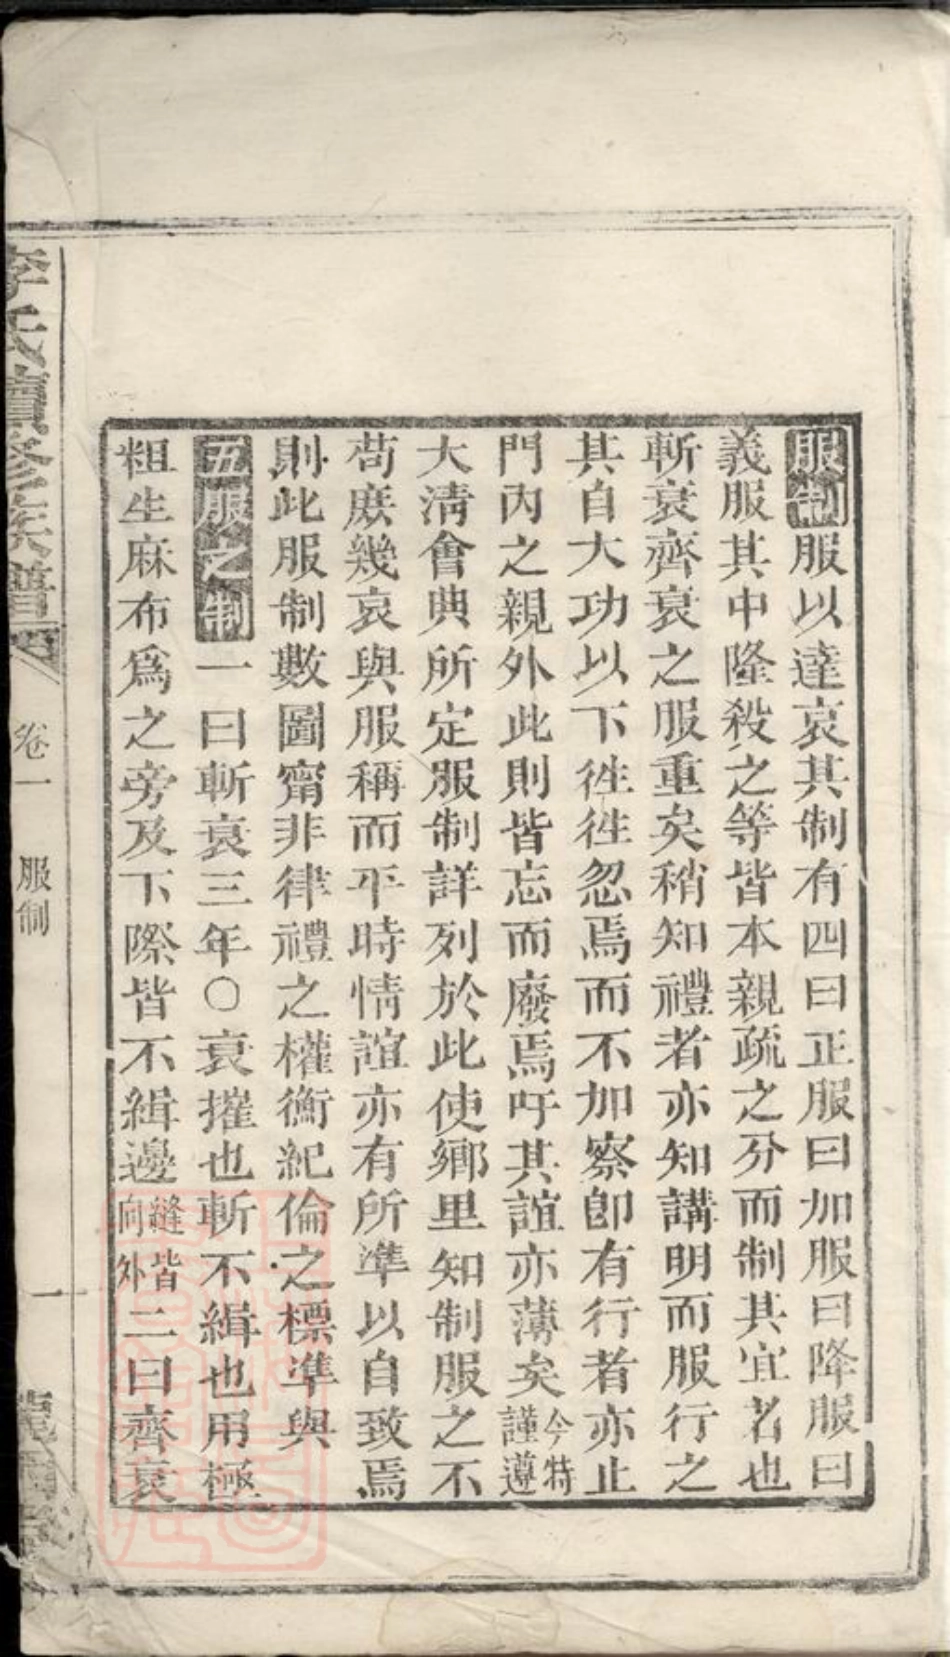 服制服以達哀其制有四曰正服曰加服曰降服曰
義服其中隆殺之等皆本親疏之分而制其宜者也
斬衰齊衰之服重矣稍知禮者亦知講明而服行之
其自大功以下徃徃忽焉而不加察卽有行者亦止
門內之親外此則皆忘而廢焉吁其誼亦薄矣今特謹遵
大清會典所定服制詳列於此使鄉里知制服之不
苟庶幾哀與服稱而平時情誼亦有所準以自致焉
則此服制數圖甯非律禮之權衡紀倫之標準與
五服之制一曰斬衰三年○衰摧也斬不緝也用極
粗生麻布爲之旁及下際皆不緝邊縫皆向外二曰齊衰
李氏續修族譜
卷一 服制
一